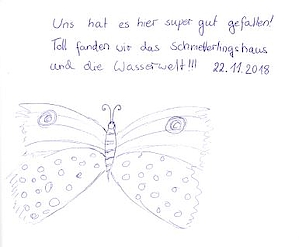 Uns hat es hier super gut gefallen!
Toll fanden wir das Schmetterlingshaus
und die Wasserwelt!!! 22.11.2018